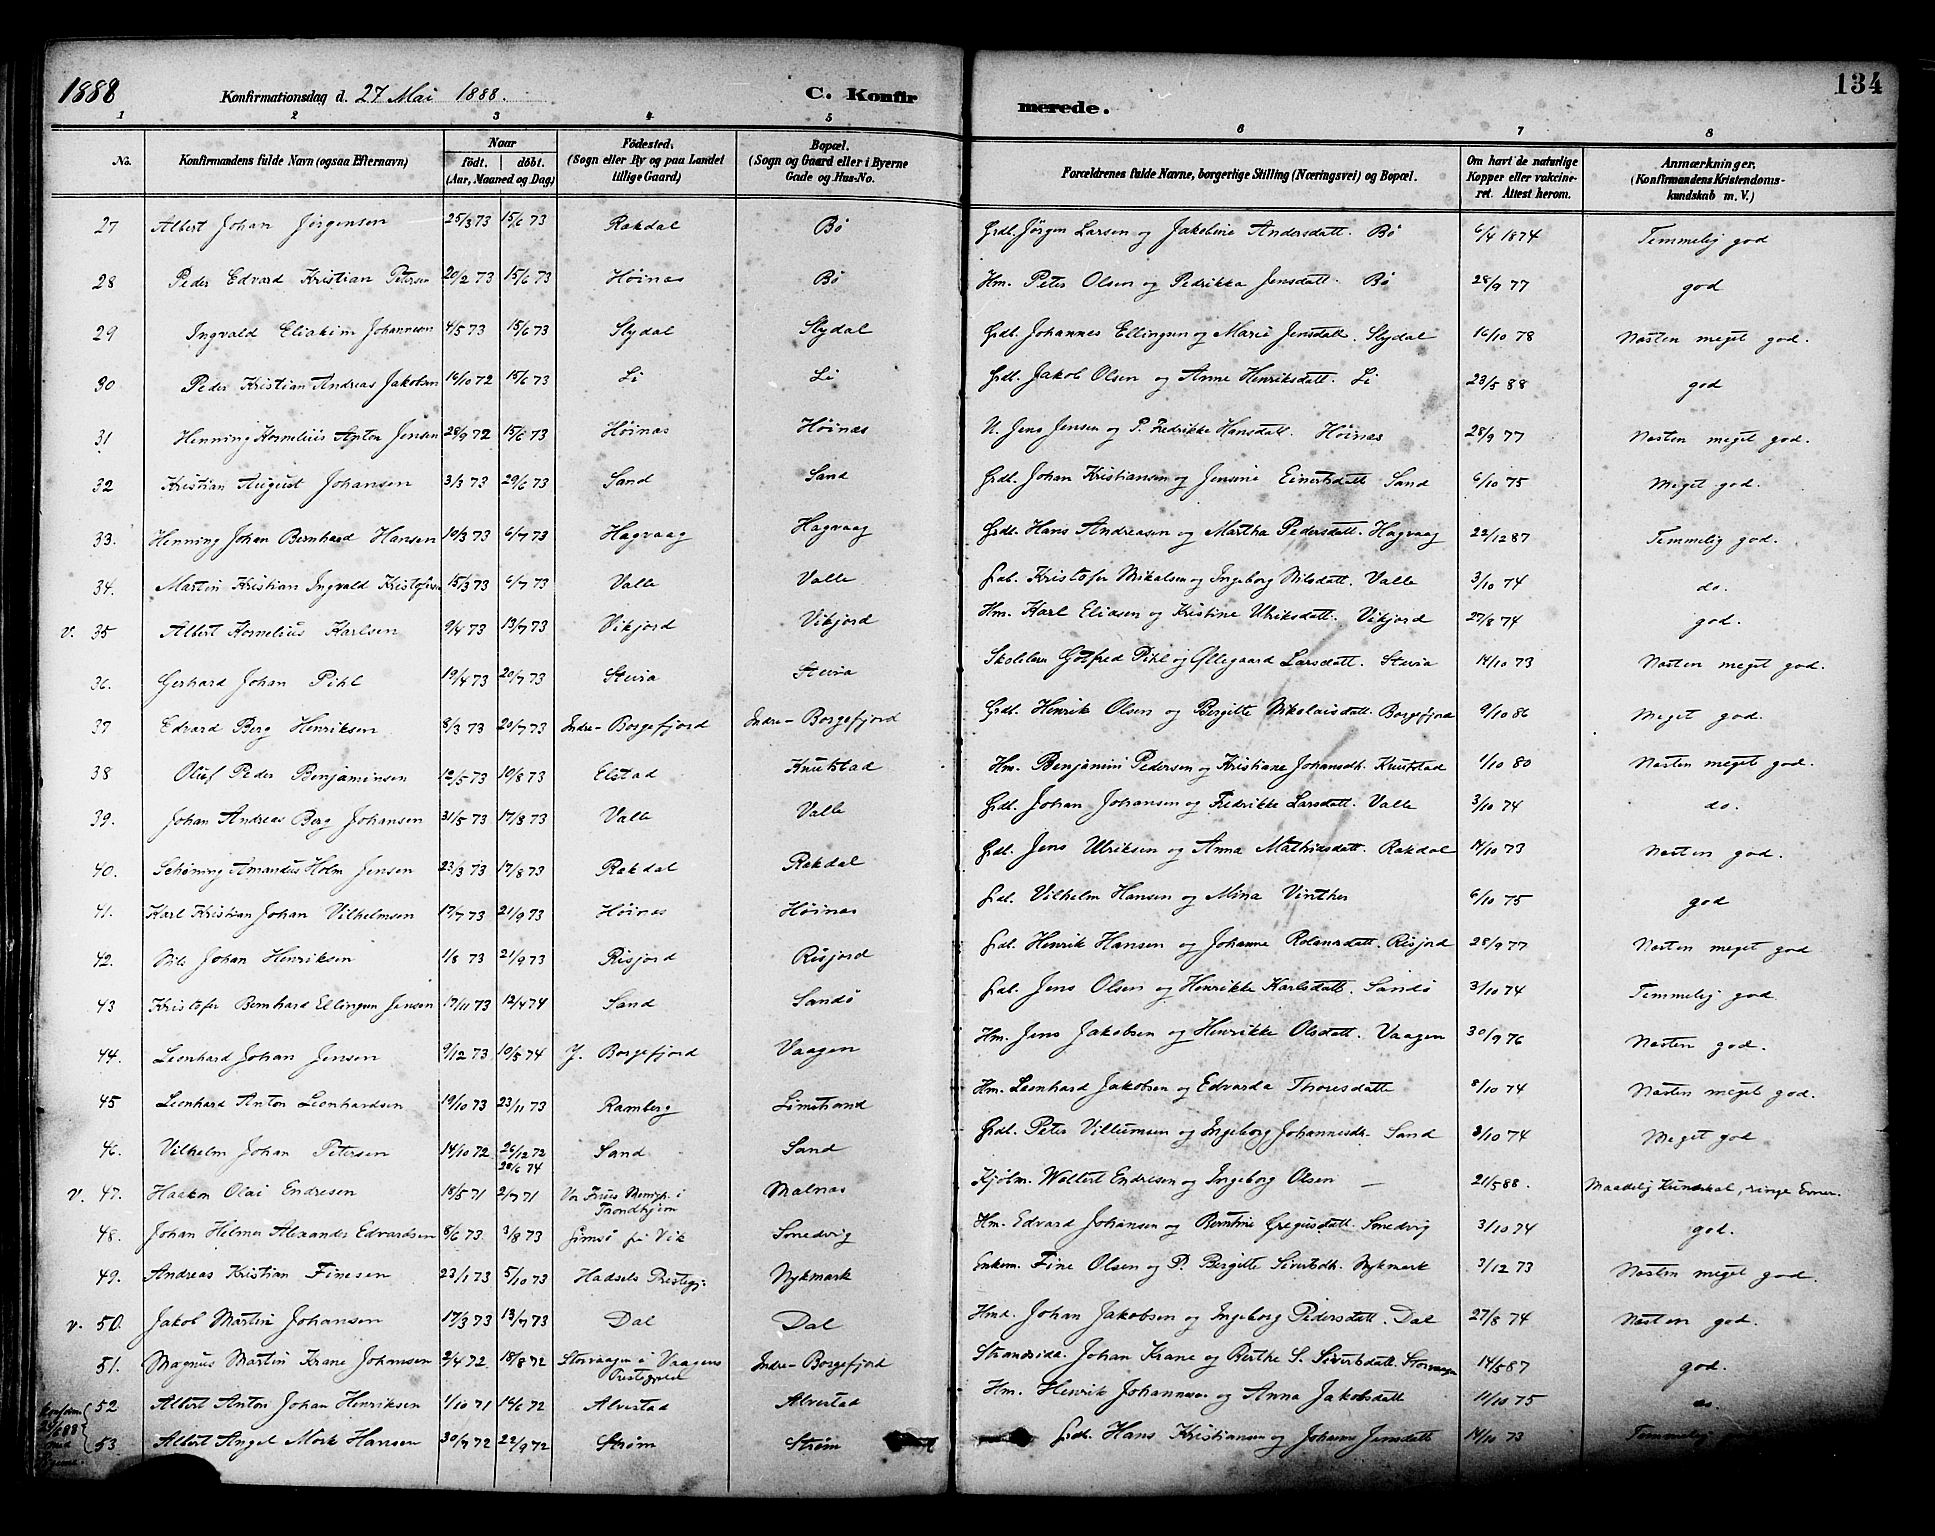 1888 Konfirmationsdag d. 27 Mai 1888. C. Konfirmerede. 134
1 2 3 4 5 6 7 8
No. Konfirmandens fulde Navn (ogsaa Efternavn) Naar født. døbt. (Aar, Maaned og Dag) Fødested. (Sogn eller By og paa Landet tillige Gaard) Bopæl. (Sogn og Gaard eller i Byerne Gade og Hus-No. Forældrenes fulde Navne, borgerlige Stilling (Næringsvei) og Bopæl. Om havt de naturlige Kopper eller vaccineret. Attest herom. Anmærkninger. (Konfirmandens Kristendomskundskab m. V.)
27 Albert Johan Jørgensen 25/3 73 15/6 73 Rakdal Bö Grdb. Jörgen Larsen og Jakobine Andersdatt. Bö 6/4 1874 Temmelig god
28 Peder Edvard Kristian Petersen 20/2 73 15/6 73 Höinas Bö Hm. Peter Olsen og Pedrikka Jensdatt. Bö 28/9 77 god
29 Ingvald Eliakim Johannesen 4/5 73 15/6 73 Slydal Slydal Grdb. Johannes Ellingsen og Marie Jensdatt. Slydal 16/10 78 Næsten meget god.
30 Peder Kristian Andreas Jakobsen 14/10 72 15/6 73 Li Li Grdb. Jakob Olsen og Anne Henriksdatt. Li 23/5 88 god
31 Henning Kornelius Anton Jensen 28/9 72 15/6 73 Höinas Höinas U. Jens Jensen og P. Fredrikke Hansdatt. Höinas 28/9 77 Næsten meget god.
32 Kristian August Johansen 3/3 73 29/6 73 Sand Sand Grdb. Johan Kristiansen og Jensine Einertsdatt Sand 6/10 75 Meget god.
33. Henning Johan Bernhard Hansen 10/3 73 6/7 73 Hagvaag Hagvaag Grdb. Hans Andreasen og Martha Pedersdatt. Hagvaag 22/12 87 Temmelig god.
34. Martin Kristian Ingvald Kristofersen 15/3 73 6/7 73 Valle Valle Grdb. Kristofer Mikalsen og Ingeborg Nilsdatt. Valle 3/10 74 do.
v. 35 Albert Kornelius Karlsen 9/4 73 13/7 73 Vikjord Vikjord Hm. Karl Eliasen og Kristine Ulriksdatt. Vikjord 27/8 74 god.
36. Gerhard Johan Pihl 19/4 73 20/7 73 Steira Steira Skolelærer Gotfred Pihl og Øllegaard Larsdatt. Steira 14/10 73 Næsten meget god.
37 Edvard Berg Henriksen 8/3 73 20/7 73 Indre-Borgefjord Indre-Borgefjord Grdb. Henrik Olsen og Bergitte Nikolaisdatt. Borgefjord 9/10 86 Meget god.
38 Oluf Peder Benjaminsen 12/5 73 10/8 73 Elstad Knutstad Hm. Benjamin Pedersen og Kristiane Johansdtr. Knutstad 1/10 80 Næsten meget god.
39. Johan Andreas Berg Johansen 31/5 73 17/8 73 Valle Valle Grdb. Johan Johansen og Fredrikke Larsdatt. Valle 3/10 74 do.
40. Schöning Amandus Holm Jensen 23/3 73 17/8 73 Rakdal Rakdal Grdb. Jens Ulriksen og Anna Mathisdatt. Rakdal 14/10 73 Næsten god.
41. Karl Kristian Johan Vilhelmsen 17/7 73 21/9 73 Höinas Höinas Grdb. Vilhelm Hansen og Mina Vinther 6/10 75 god
42. Nils Johan Henriksen 1/8 73 21/9 73 Risjord Risjord Grdb. Henrik Hansen og Johanne Rolansdatt. Risjord 28/9 77 Næsten meget god
43 Kristofer Bernhard Ellingsen Jensen 17/11 73 12/4 74 Sand Sandö Grdb. Jens Olsen og Henrikke Karlsdatt. Sandö 3/10 74 Temmelig god
44. Leonhard Johan Jensen 9/12 73 10/5 74 J. Borgefjord Vaagen Hm. Jens Jakobsen og Henrikke Olsdatt. Vaagen 30/9 76 Næsten god.
45 Leonhard Anton Leonhardsen 19/10 73 23/11 73 Ramberg Limstrand Hm. Leonhard Jakobsen og Edvarda Thoresdatt 8/10 74 Næsten meget god.
46. Vilhelm Johan Petersen 14/10 72 26/12 72 28/6 74 Sand Sand Grdb. Peter Villumsen og Ingeborg Johannesdr. Sand 3/10 74 Meget god
v. 47. Haakon Olai Endresen 18/5 71 2/7 71 Vor Frues Menigh. i Trondhjem Malnas Kjöbm. Woldert Endresen og Ingeborg Olsen — 21/5 88. Maadelig Kundskab, ringe Evner.
48. Johan Helmer Alexander Edvardsen 8/6 73 3/8 73 Gimsö på Vik Smedvig Hm. Edvard Johansen og Berntine Gregusdatt. Smedvig 3/10 74 god.
49. Andreas Kristian Finesen 23/1 73 5/10 73 Hadsels Prestegj: Nykmark Enkem. Fine Olsen og P. Bergitte Sivertsdtr. Nykmark 3/12 73 Næsten meget god.
v. 50. Jakob Martin Johansen 17/3 73 13/7 73 Dal Dal Hmd. Johan Jakobsen og Ingeborg Pedersdatt. Dal 27/8 74 Næsten god.
51. Magnus Martin Krane Johansen 2/4 72 18/8 72 Storvaagen i Vaagens Prestegjeld Indre-Borgefjord Strandsid. Johan Krane og Berthe S. Sivertsdatt. Storvaagen 14/5 87 god.
52 Albert Anton Johan Henriksen 1/10 71 14/6 72 Alvestad Alvestad Hm. Henrik Johannesen og Anna Jakobsdatt 11/10 75 do.
53 Albert Angel Mörk Hansen 30/7 72 22/9 72 Ström Ström Grdb. Hans Kristiansen og Johanne Jensdatt 14/10 73 Temmelig